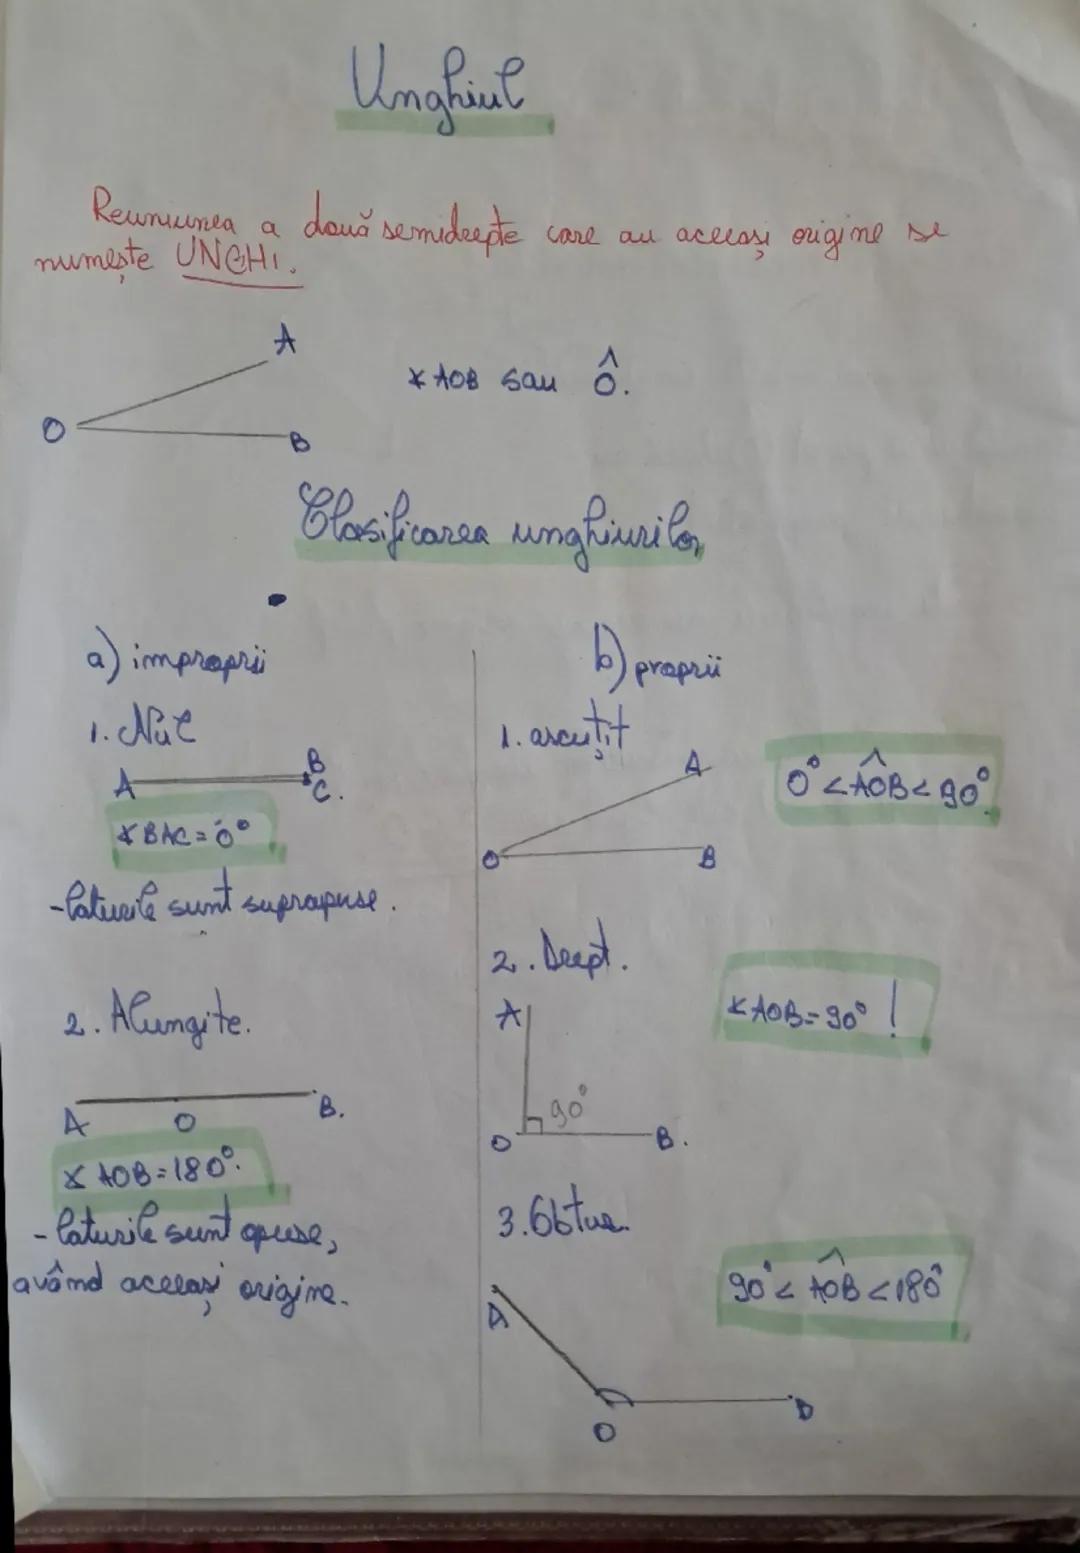 Unghiul
Reuniunea a două semidrepte care au aceeași origine se
numește UNGHI.
A
O
B
∢AOB sau Ô.
Clasificarea unghiurilor
a) improprii
1. Nul
A
B
C.
∢BAC = 0°
- laturile sunt suprapuse.
2. Alungite.
A
O
B.
∢AOB = 180°.
- laturile sunt opuse,
având aceeași origine.
b) proprii
1. ascuțit
A
O
B
0° < AÔB < 90°
2. Drept.
A
90°
O
B.
∢AOB = 90° !
3. Obtuz.
A
O
B
90° < AÔB < 180°